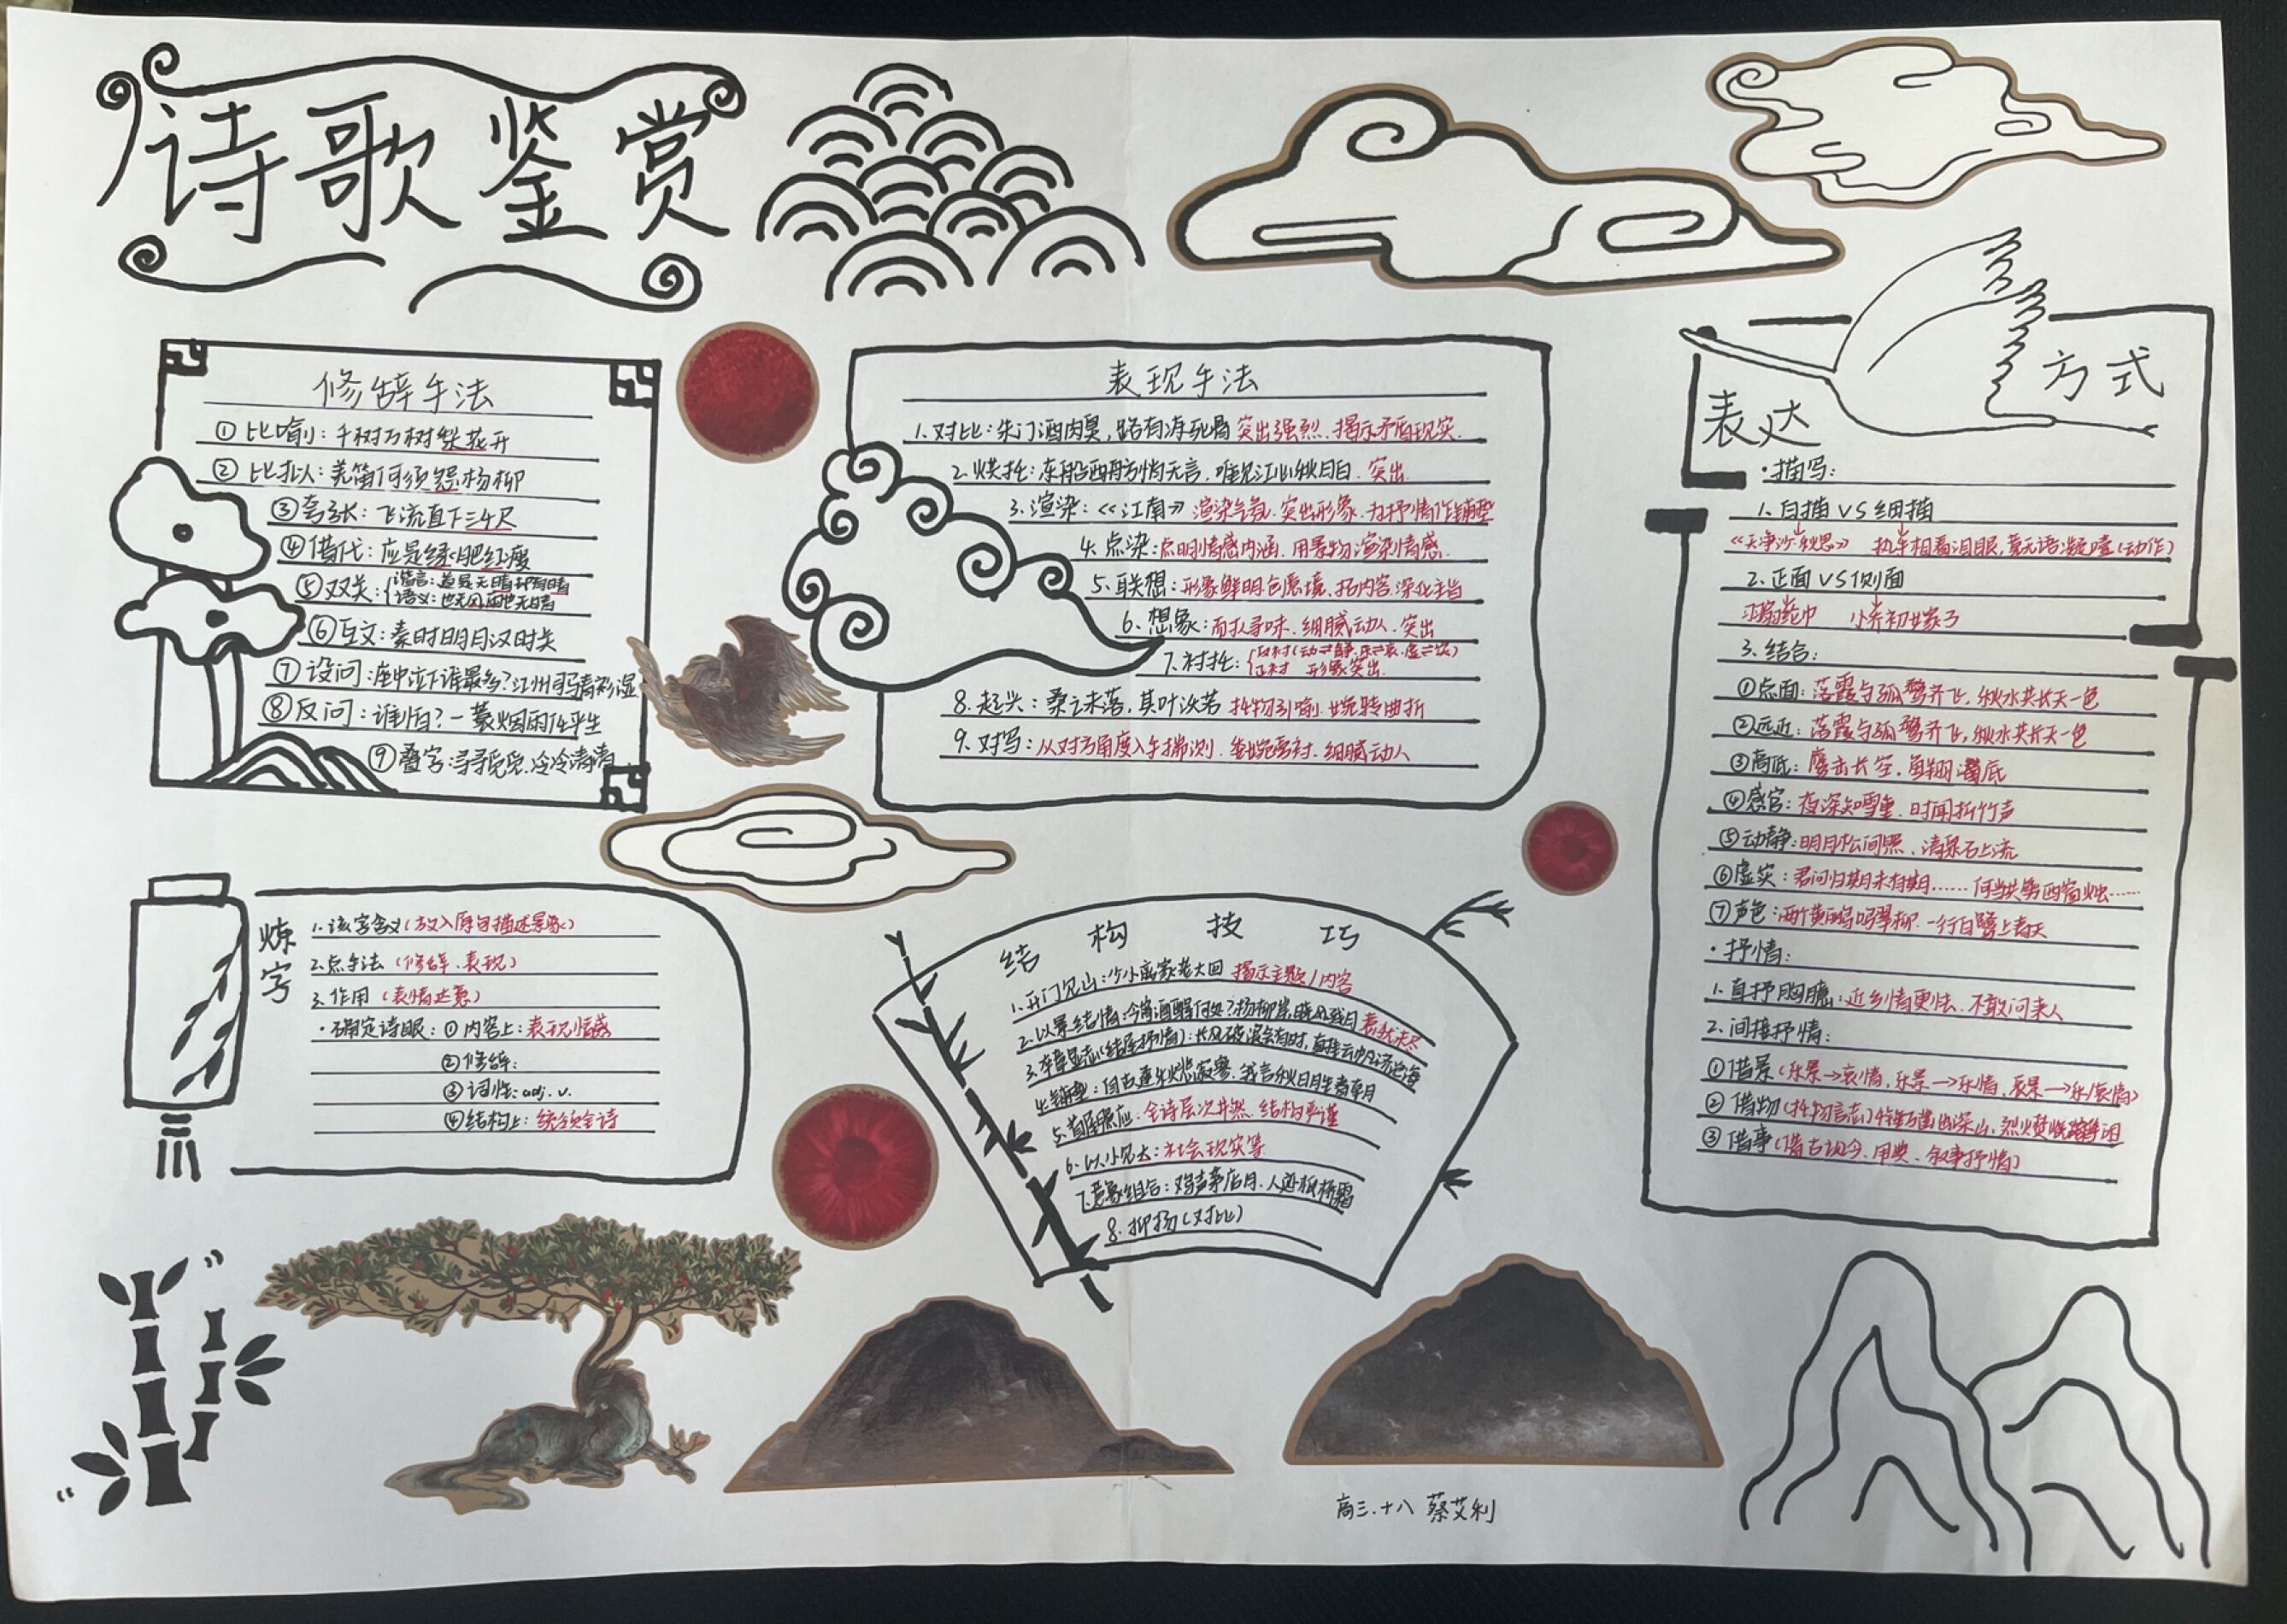 诗歌鉴赏
修辞手法
① 比喻：千树万树梨花开
② 比拟：羌笛何须怨杨柳
③ 夸张：飞流直下三千尺
④ 借代：应是绿肥红瘦
⑤ 双关：谐音：道是无晴却有晴
语义：也无风雨也无晴
⑥ 互文：秦时明月汉时关
⑦ 设问：座中泣下谁最多？江州司马青衫湿
⑧ 反问：谁怕？一蓑烟雨任平生
⑨ 叠字：寻寻觅觅、冷冷清清
表现手法
1. 对比：朱门酒肉臭，路有冻死骨 突出强烈、揭示矛盾现实.
2. 烘托：东船西舫悄无言，唯见江心秋月白. 突出.
3. 渲染：《江南》渲染气氛. 突出形象. 为抒情作铺垫
4. 点染：点明情感内涵、用景物渲染情感.
5. 联想：形象鲜明. 创意境、拓内容. 深化主旨
6. 想象：耐人寻味、细腻动人、突出
7. 衬托：反衬(动⇌静. 乐⇌哀. 虚⇌实)
正衬 形象突出.
8. 起兴：桑之未落，其叶沃若 托物引喻. 婉转曲折
9. 对写：从对方角度入手揣测. 委婉 细腻动人
表达方式
·描写：
1. 白描 VS 细描
《天净沙·秋思》 执手相看泪眼，竟无语凝噎(动作)
2. 正面 VS 侧面
羽扇纶巾 小乔初嫁了
3. 结合：
①点面：落霞与孤鹜齐飞，秋水共长天一色
②远近：落霞与孤鹜齐飞，秋水共长天一色
③高低：鹰击长空，鱼翔浅底
④感官：夜深知雪重，时闻折竹声
⑤动静：明月松间照，清泉石上流
⑥虚实：君问归期未有期……何当共剪西窗烛……
⑦声色：两个黄鹂鸣翠柳. 一行白鹭上青天
·抒情：
1. 直抒胸臆：近乡情更怯、不敢问来人
2. 间接抒情：
①借景(乐景→哀情，乐景→乐情，哀景→乐/哀情)
②借物(托物言志)千锤万凿出深山，烈火焚烧若等闲
③借事(借古讽今、用典、叙事抒情)
炼字
1. 该字含义(放入原句描述景象)
2. 点手法(修辞、表现)
3. 作用(表情达意)
·确定诗眼：①内容上：表现情感
②修辞：
③词性：adj. v.
④结构上：统领全诗
结构技巧
1. 开门见山：少小离家老大回 揭示主题/内容
2. 以景结情：今宵酒醒何处？杨柳岸，晓风残月 意犹未尽
3. 卒章显志(结尾抒情)：长风破浪会有时，直挂云帆济沧海
4. 铺垫：自古逢秋悲寂寥，我言秋日胜春朝
5. 首尾照应：全诗层次井然、结构严谨
6. 以小见大：社会现实等
7. 意象组合：鸡声茅店月，人迹板桥霜
8. 抑扬(对比)
高三.十八 蔡艾利